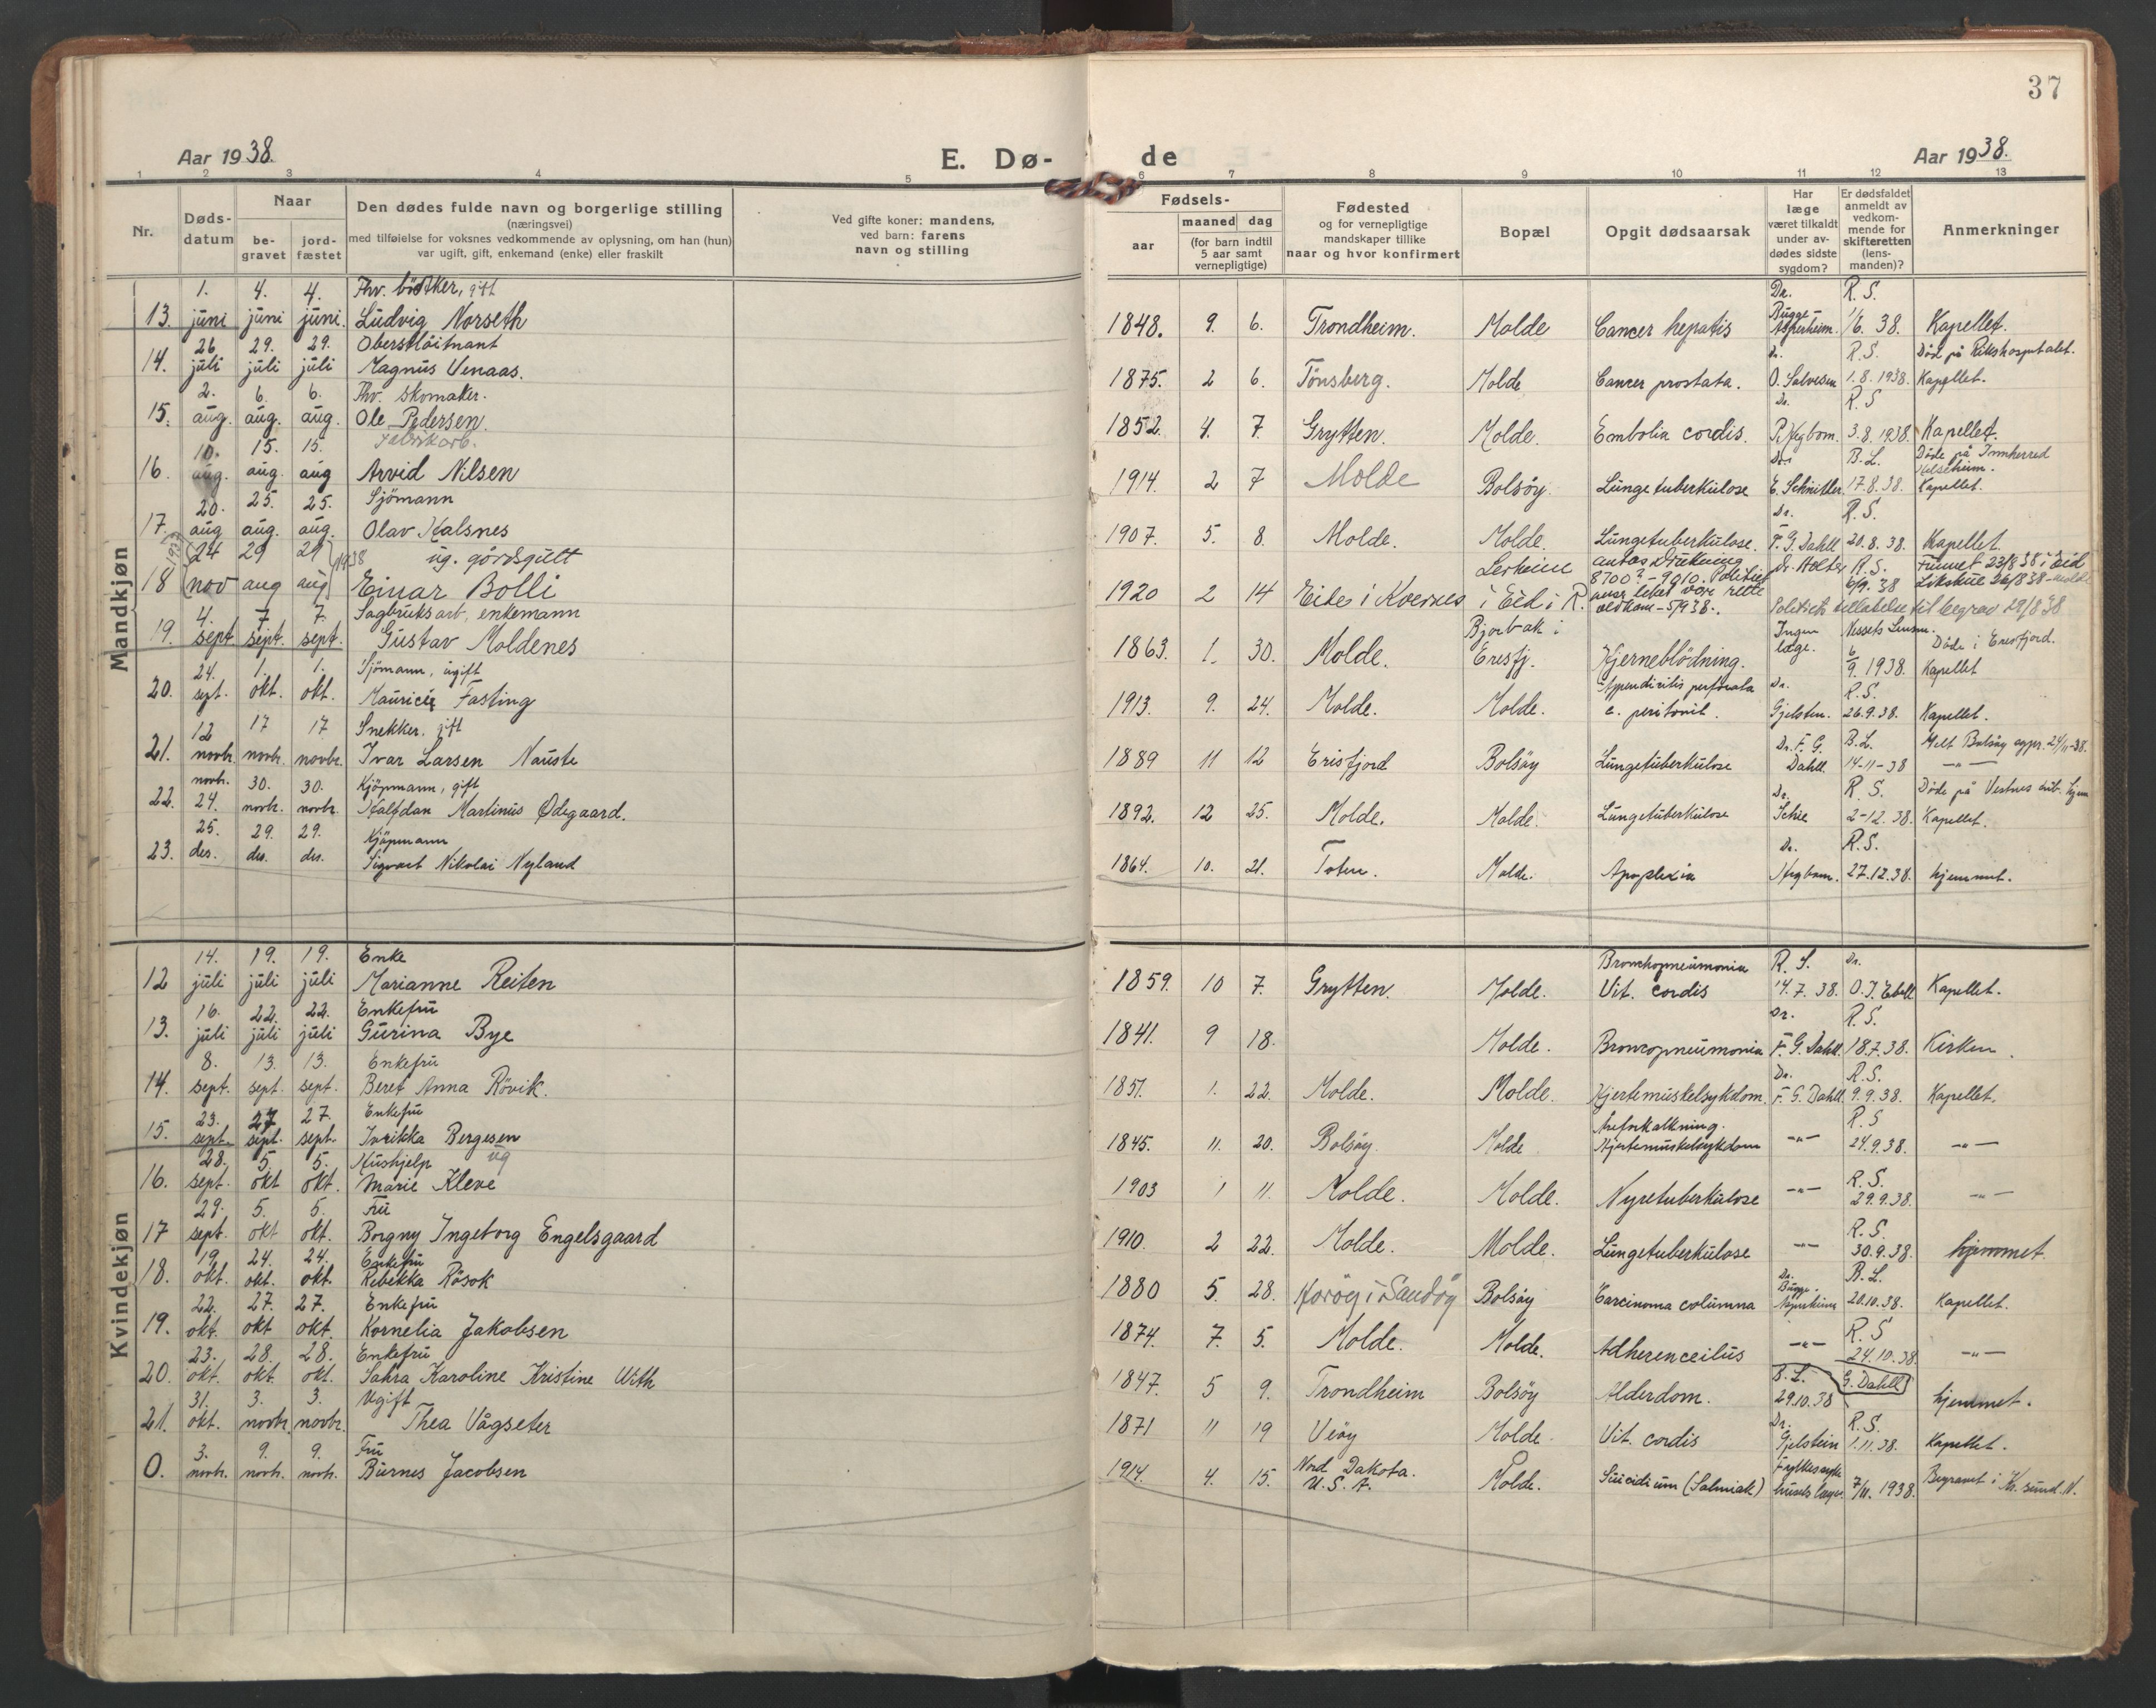 37
Aar 1938.
E. Dø-
de
Aar 1938.
1 2 3 4 5 6 7 8 9 10 11 12 13
Nr.
Døds-
datum
Naar
be-
gravet
jord-
fæstet
Den dødes fulde navn og borgerlige stilling
(næringsvei)
med tilføielse for voksnes vedkommende av oplysning, om han (hun)
var ugift, gift, enkemand (enke) eller fraskilt
Ved gifte koner: mandens,
ved barn: farens
navn og stilling
Fødsels-
aar
maaned dag
(for barn indtil
5 aar samt
vernepligtige)
Fødested
og for vernepligtige
mandskaper tillike
naar og hvor konfirmert
Bopæl
Opgit dødsaarsak
Har
læge
været tilkaldt
under av-
dødes sidste
sygdom?
Er dødsfaldet
anmeldt av
vedkom-
mende for
skifteretten
(lens-
manden)?
Anmerkninger
Mandkjøn
1. 4. 4. Fhv. bødker, gift Dr. R. S.
13. juni juni juni. Ludvig Norseth 1848. 9. 6. Trondheim. Molde Cancer hepatis Bugge- 1/6. 38. Kapellet.
26 29. 29. Oberstløitnant Dr. R.S. Död på Rikshospitalet.
14. juli juli juli Magnus Venaas. 1875. 2 6. Tönsberg. Molde Cancer prostata. O. Salvesen 1.8.1938. Kapellet.
2. 6. 6. Fhv. skomaker. Dr. R.S
15. aug. aug. aug. Ole Pedersen. 1852. 4. 7. Grytten. Molde. Embolia cordis. 3.8.1938. Kapellet.
10. 15. 15. Fabrikarb. Dr. B.L. Döde på Innherred
16. aug. aug. aug Arvid Nilsen 1914. 2 7 Molde Bolsöy. Lungetuberkulose E. Schnitler. 17.8.38. Helseheim. Kapellet.
20. 25. 25. Sjömann Dr. R.S.
17. aug aug. aug. Olav Halsnes 1907. 5. 8. Molde. Molde. Lungetuberkulose. F. G. Dahll 20.8.38. Kapellet.
1937 24 29 29 1938 ug. gårdsgutt
18 nov aug aug Einar Bolli 1920 2 14 Eide i Kvernes i Eid i R. R.S. 6/9. 38 Funnet 23/8 38 i Eid
4. 7 7. Sagbruksarb, enkemann Politiets tillatelse til begrav 29/8 38
19. sept sept. sept. Gustav Moldenes 1863. 1. 30. Molde. Eresfj. Hjerneblödning. Ingen læge. 6/9. 1938. Döde i Eresfjord. Kapellet
24. 1. 1. Sjömann, ugift Apendicitis perforata Dr. R.S.
20. sept. okt. okt. Fasting 1913. 9. 24. Molde. Molde. c. peritonit. Gjelsten. 26.9.38. Kapellet.
12 17 17 Snekker. gift Dr. F. G. B.L.
21. novbr. novbr. novbr. Ivar Larsen Nauste 1889 11 12 Erisfjord Bolsöy Lungetuberkulose Dahll. 14-11-38 -"-
novbr. 30. 30. Kjöpmann, gift Dr. R.S.
22. 24. novbr. novbr. Halfdan Martinus Ødegaard. 1892. 12 25. Molde. Molde. Lungetuberkulose 2-12.38. Kapellet.
25. 29. 29. Kjöpmann Dr. R.S.
23. des. des. des. Sigvart Nikolai Nyland 1864. 10. 21. Toten. Molde. Apoplexia 27.12.38. hjemmet.
Kvindekjøn
14. 19. 19. Enke Bronchopneumonia R.S. Dr.
12 juli juli juli Marianne Reiten 1859. 10 7. Grytten. Molde. Vit. cordis 14.7.38. Kapellet.
16. 22. 22. Enkefru Dr. R.S.
13. juli juli juli Gurina Bye 1841. 9 18. Molde. Broncopneumonia F. G. Dahll. 18.7.38. Kirken.
8. 13. 13. Enkefru Dr. R.S.
14. sept. sept. sept. Beret Anna Rövik. 1851. 1. 22. Molde. Molde. Hjertemuskelsykdom. F. G. Dahll 9.9.38. Kapellet.
23. 27 27. Enkefru Areforkalkning. R.S
15. sept. sept. sept. Bergesen 1845. 11. 20. Bolsöy. Molde Hjertemuskelsykdom -"- 24.9.38. -"-
28. 5. 5. Hushjelp ug R.S.
16. sept. okt okt. Marie Kleve 1903 1 11. Molde. Molde. Nyretuberkulose -"- 29.9.38. -"-
29. 5. 5. Fru R.S.
17 sept. okt okt. Borgny Ingeborg Engelsgaard 1910. 2 22. Molde. Molde. Lungetuberkulose -"- 30.9.38. hjemmet.
19. 24. 24. Enkefru Dr. B.L.
18. okt. okt. okt. Rebekka Rösok 1880 5. 28. Haröy i Sandöy Bolsöy Carcinoma columna 20.10.38. Kapellet.
22. 27. 27. Enkefru R.S
19. okt. okt okt. Kornelia Jakobsen 1874. 7. 5. Molde. Molde. -"- 24.10.38. -"-
23. 28. 28. Enkefru B.L. G. Dahll
20. okt. okt. okt. Sahra Karoline Kristine With 1847. 5 9. Trondheim Bolsöy Alderdom. 29.10.38 hjemmet.
31. 3. 3. Ugift Dr. R.S.
21. okt. novbr. novbr. Thea Vågseter 1871 11 19 Veöy Molde. Vit. cordis Gjelstein 1.11.38. Kapellet.
3. 9. 9. Fru Nord Dakota.
0. novbr. novbr. novbr. Burnes Jacobsen 1914. 4. 15. U.S.A. Molde. Suicidium (Salmiak) 7/11. 1938. Begravet i Kr. sund. N.